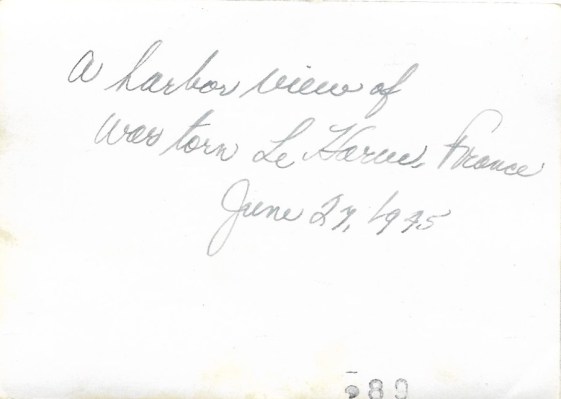 A harbor view of
war torn Le Harve, France
June 27, 1945
589